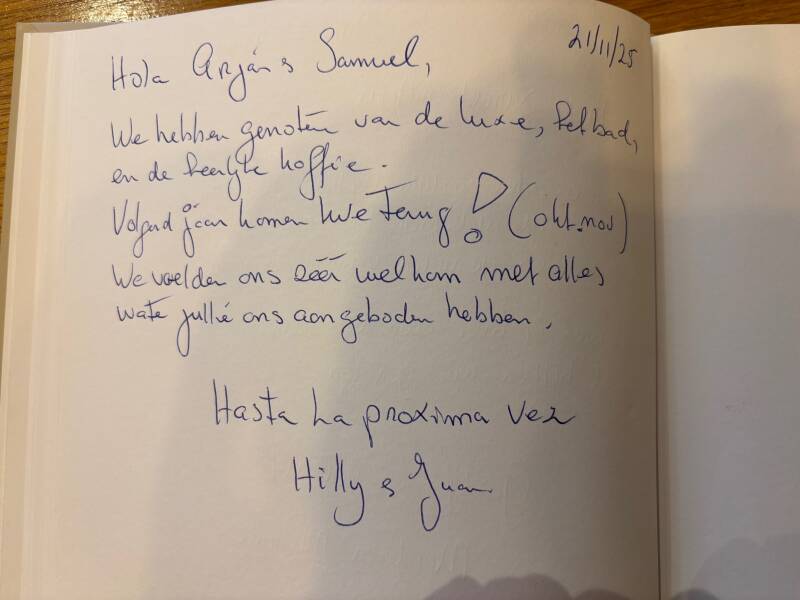 21/11/25
Hola Arján & Samuel,
We hebben genoten van de luxe, het bad,
en de heerlijke koffie.
Volgend jaar komen we terug! (okt.nov)
We voelden ons zéér welkom met alles
wat jullie ons aangeboden hebben,
Hasta La proxima vez
Hilly & Juan